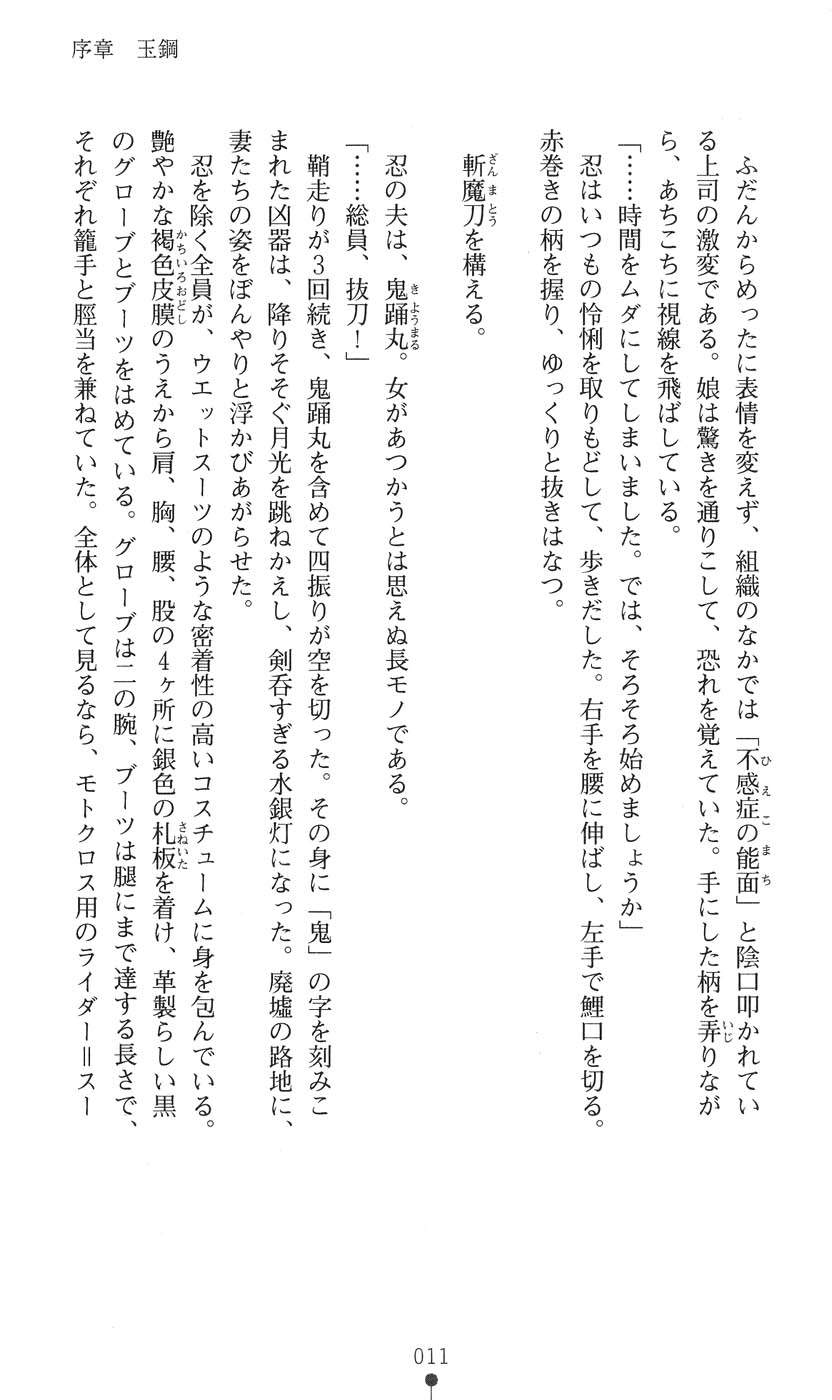 序章　玉鋼
　ふだんからめったに表情を変えず、組織のなかでは「不感症の能面」と陰口叩かれてい
る上司の激変である。娘は驚きを通りこして、恐れを覚えていた。手にした柄を弄りなが
ら、あちこちに視線を飛ばしている。
「……時間をムダにしてしまいました。では、そろそろ始めましょうか」
　忍はいつもの怜悧を取りもどして、歩きだした。右手を腰に伸ばし、左手で鯉口を切る。
赤巻きの柄を握り、ゆっくりと抜きはなつ。
　斬魔刀を構える。
　忍の夫は、鬼踊丸。女があつかうとは思えぬ長モノである。
「……総員、抜刀！」
　鞘走りが３回続き、鬼踊丸を含めて四振りが空を切った。その身に「鬼」の字を刻みこ
まれた凶器は、降りそそぐ月光を跳ねかえし、剣呑すぎる水銀灯になった。廃墟の路地に、
妻たちの姿をぼんやりと浮かびあがらせた。
　忍を除く全員が、ウエットスーツのような密着性の高いコスチュームに身を包んでいる。
艶やかな褐色皮膜のうえから肩、胸、腰、股の４ヶ所に銀色の札板を着け、革製らしい黒
のグローブとブーツをはめている。グローブは二の腕、ブーツは腿にまで達する長さで、
それぞれ籠手と脛当を兼ねていた。全体として見るなら、モトクロス用のライダー＝スー
ひえこまち
いじ
ざんまとう
きようまる
かちいろおどし
さねいた
011